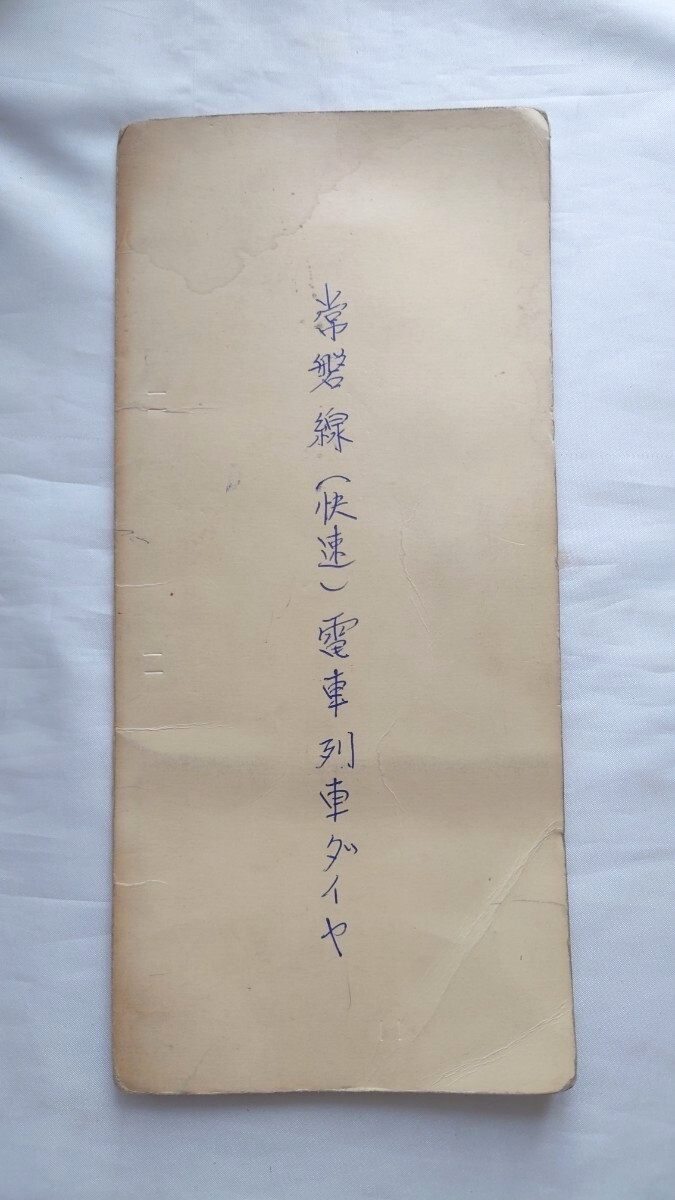 常磐線(快速)電車列車ダイヤ